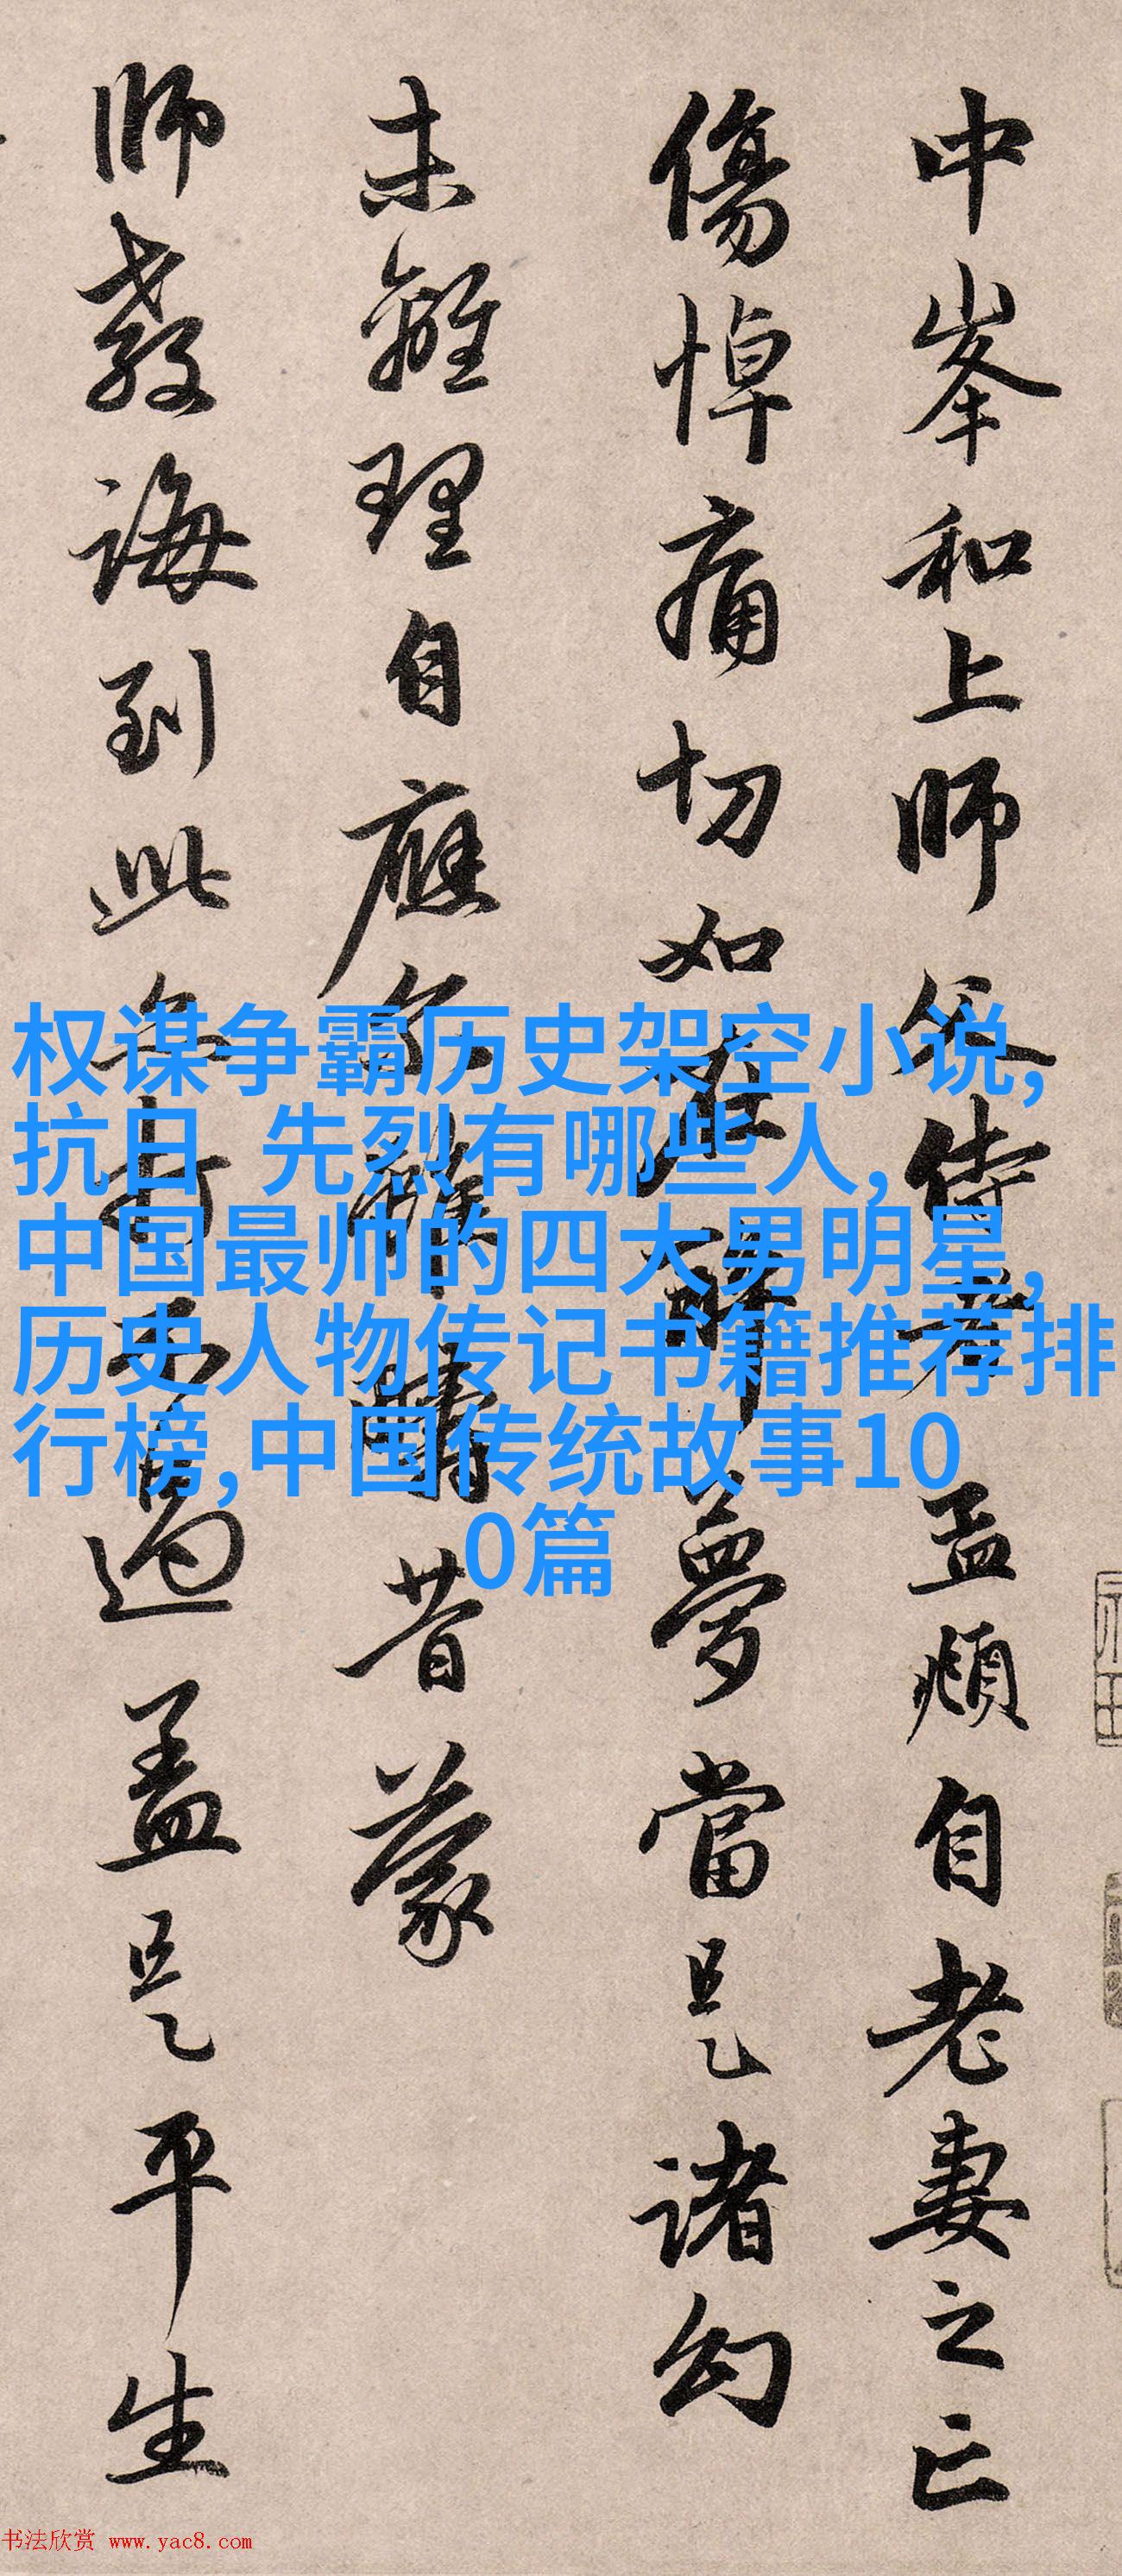 中峯和上師父侍者 孟頫自老妻之亡
傷悼痛切如在醉夢當是諸幻
未離理自應尔雖疇昔蒙
師教誨到此亦打不過蓋是平生
权谋争霸历史架空小说,
抗日 先烈有哪些人,
中国最帅的四大男明星,
历史人物传记书籍推荐排
行榜,中国传统故事10
0篇
书法欣赏 www.yac8.com